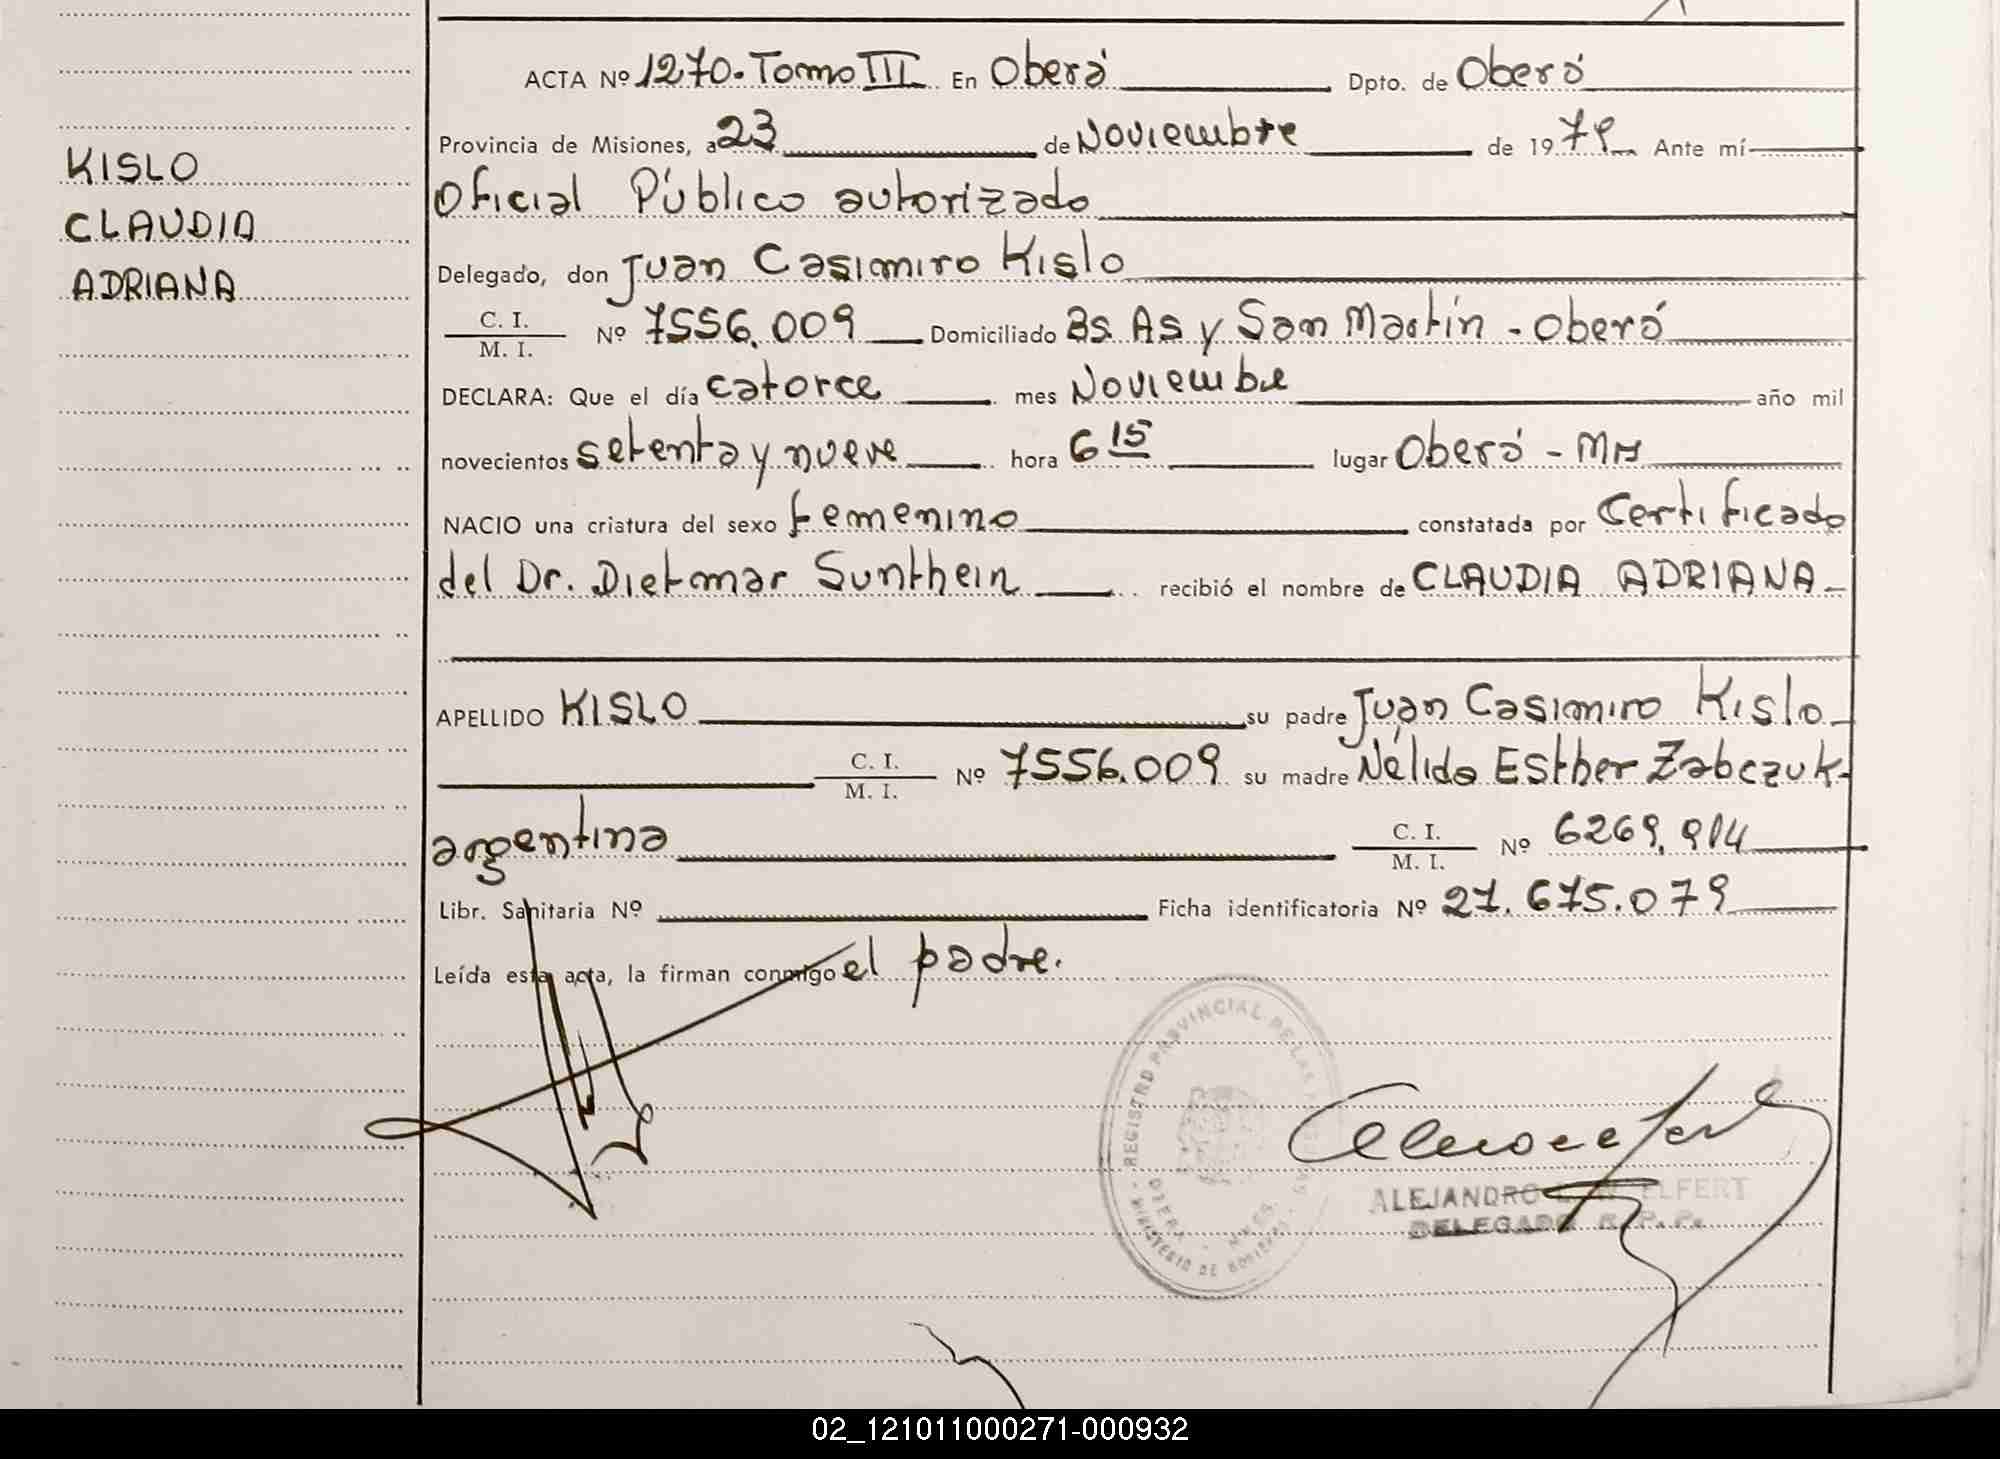 KISLO
CLAUDIA
ADRIANA
ACTA Nº 1270. Tomo III En Oberá Dpto. de Oberá
Provincia de Misiones, a 23 de Noviembre de 1979 Ante mí
Oficial Público autorizado
Delegado, don Juan Casimiro Kislo
C. I.
M. I. Nº 7556.009 Domiciliado Bs. As y San Martín - Oberá
DECLARA: Que el día catorce mes Noviembre año mil
novecientos setenta y nueve hora 6 15 lugar Oberá -
NACIO una criatura del sexo femenino constatada por Certificado
del Dr. Dietmar Sunthein recibió el nombre de CLAUDIA ADRIANA
APELLIDO KISLO su padre Juan Casimiro Kislo
C. I.
M. I. Nº 7556.009 su madre Nélida Esther Zabczuk
argentina C. I.
M. I. Nº 6269.914
Libr. Sanitaria Nº Ficha identificatoria Nº 27.675.079
Leída esta acta, la firman conmigo el padre.
REGISTRO PROVINCIAL DE LAS PERSONAS
MINISTERIO DE GOBIERNO
ALEJANDRO ELFERT
DELEGADO R. P. P.
02_121011000271-000932